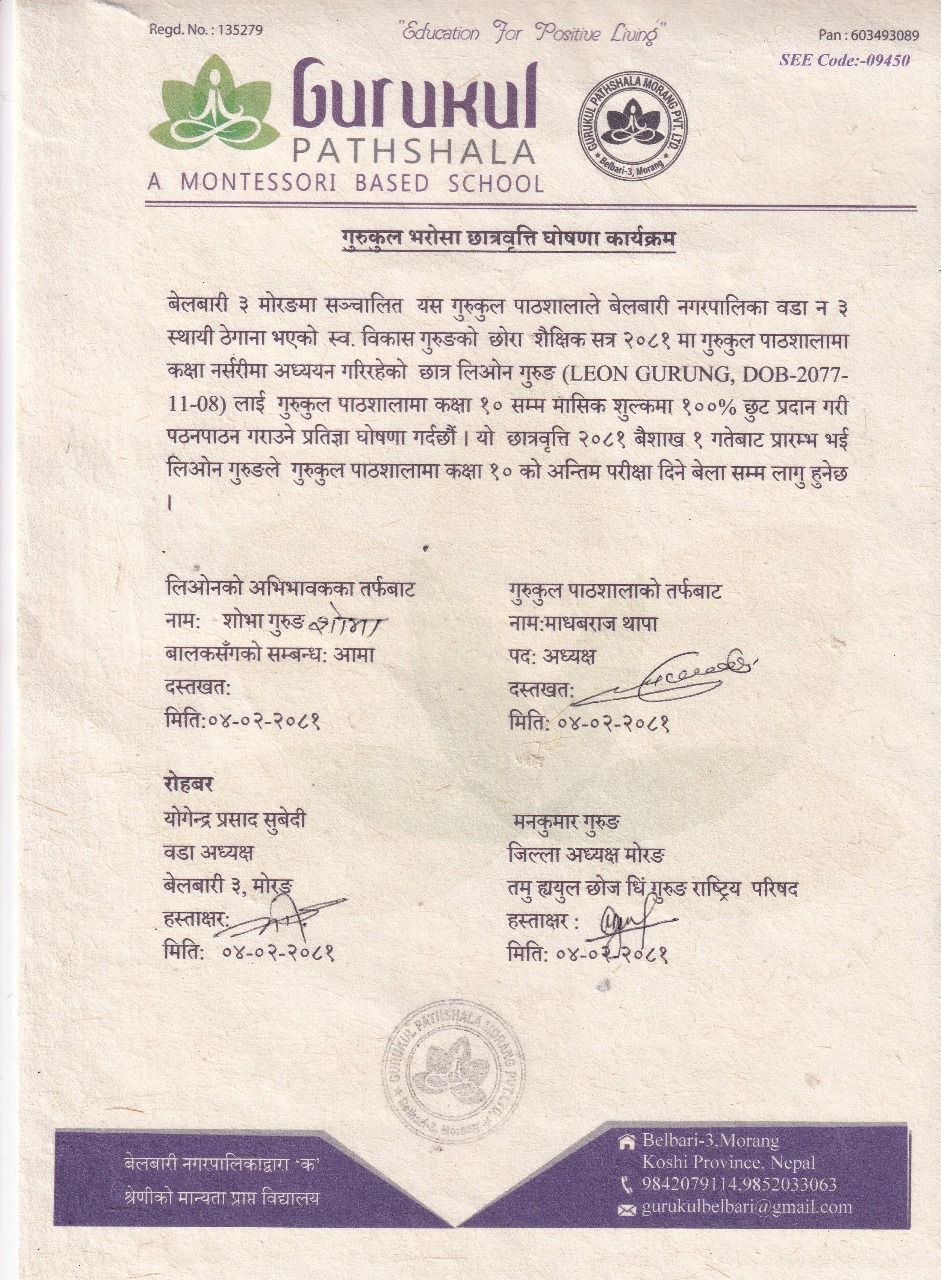 Regd. No. : 135279
"Education For Positive Living"
Pan : 603493089
SEE Code:-09450
Gurukul
PATHSHALA
A MONTESSORI BASED SCHOOL
GURUKUL PATHSHALA MORANG PVT. LTD.
Belbari-3, Morang
गुरुकुल भरोसा छात्रवृत्ति घोषणा कार्यक्रम
बेलबारी ३ मोरङमा सञ्चालित यस गुरुकुल पाठशालाले बेलबारी नगरपालिका वडा न ३
स्थायी ठेगाना भएको स्व. विकास गुरुङको छोरा शैक्षिक सत्र २०८१ मा गुरुकुल पाठशालामा
कक्षा नर्सरीमा अध्ययन गरिरहेको छात्र लिओन गुरुङ (LEON GURUNG, DOB-2077-
11-08) लाई गुरुकुल पाठशालामा कक्षा १० सम्म मासिक शुल्कमा १००% छुट प्रदान गरी
पठनपाठन गराउने प्रतिज्ञा घोषणा गर्दछौं । यो छात्रवृत्ति २०८१ बैशाख १ गतेबाट प्रारम्भ भई
लिओन गुरुङले गुरुकुल पाठशालामा कक्षा १० को अन्तिम परीक्षा दिने बेला सम्म लागु हुनेछ
।
लिओनको अभिभावकका तर्फबाट
नाम: शोभा गुरुङ शोभा
बालकसँगको सम्बन्ध: आमा
दस्तखत:
मिति:०४-०२-२०८१
गुरुकुल पाठशालाको तर्फबाट
नाम:माधबराज थापा
पद: अध्यक्ष
दस्तखत:
मिति: ०४-०२-२०८१
रोहबर
योगेन्द्र प्रसाद सुबेदी
वडा अध्यक्ष
बेलबारी ३, मोरङ
हस्ताक्षर:
मिति: ०४-०२-२०८१
मनकुमार गुरुङ
जिल्ला अध्यक्ष मोरङ
तमु ह्युल छोज धिं गुरुङ राष्ट्रिय परिषद
हस्ताक्षर :
मिति: ०४-०२-२०८१
GURUKUL PATHSHALA MORANG PVT.LTD.
Belbari-3, Morang
बेलबारी नगरपालिकाद्वारा 'क'
श्रेणीको मान्यता प्राप्त विद्यालय
Belbari-3,Morang
Koshi Province, Nepal
9842079114,9852033063
gurukulbelbari@gmail.com